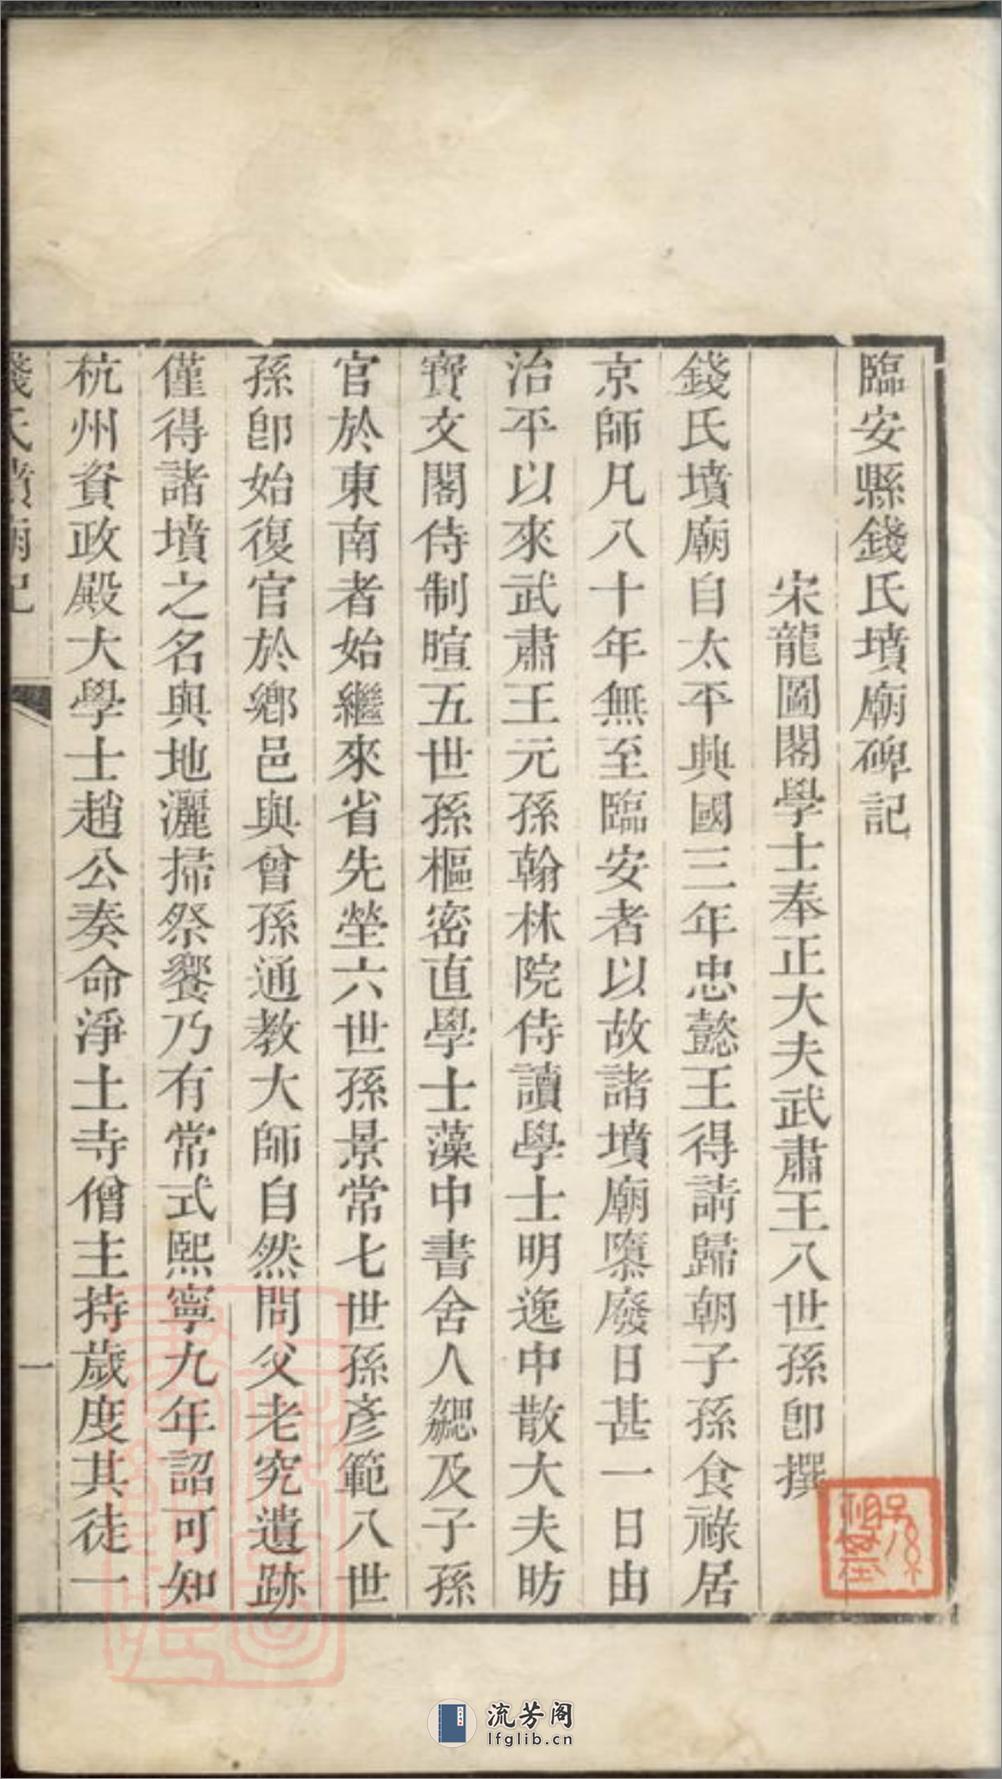 臨安縣錢氏墳廟碑記
宋龍圖閣學士奉正大夫武肅王八世孫卽撰
錢氏墳廟自太平興國三年忠懿王得請歸朝子孫食祿居
京師凡八十年無至臨安者以故諸墳廟隳廢日甚一日由
治平以來武肅王元孫翰林院侍讀學士明逸中散大夫昉
寶文閣侍制暄五世孫樞密直學士藻中書舍人勰及子孫
官於東南者始繼來省先塋六世孫景常七世孫彥範八世
孫卽始復官於鄉邑與曾孫通教大師自然問父老究遺跡
僅得諸墳之名與地灑掃祭饗乃有常式熙寧九年詔可知
杭州資政殿大學士趙公奏命淨土寺僧主持歲度其徒一
錢氏墳廟記
一
流芳阁
lfglib.cn